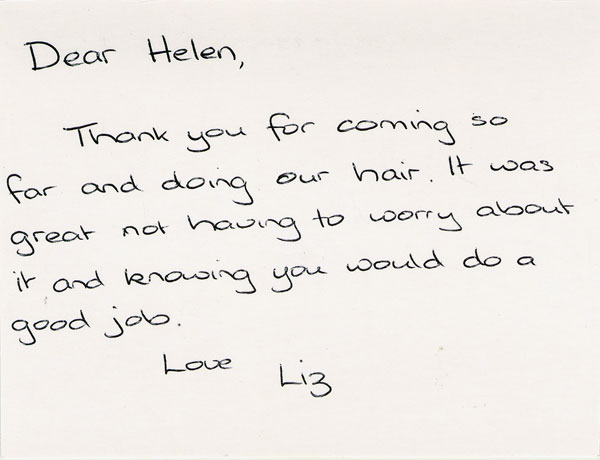 Dear Helen,
Thank you for coming so
far and doing our hair. It was
great not having to worry about
it and knowing you would do a
good job.
Love Liz